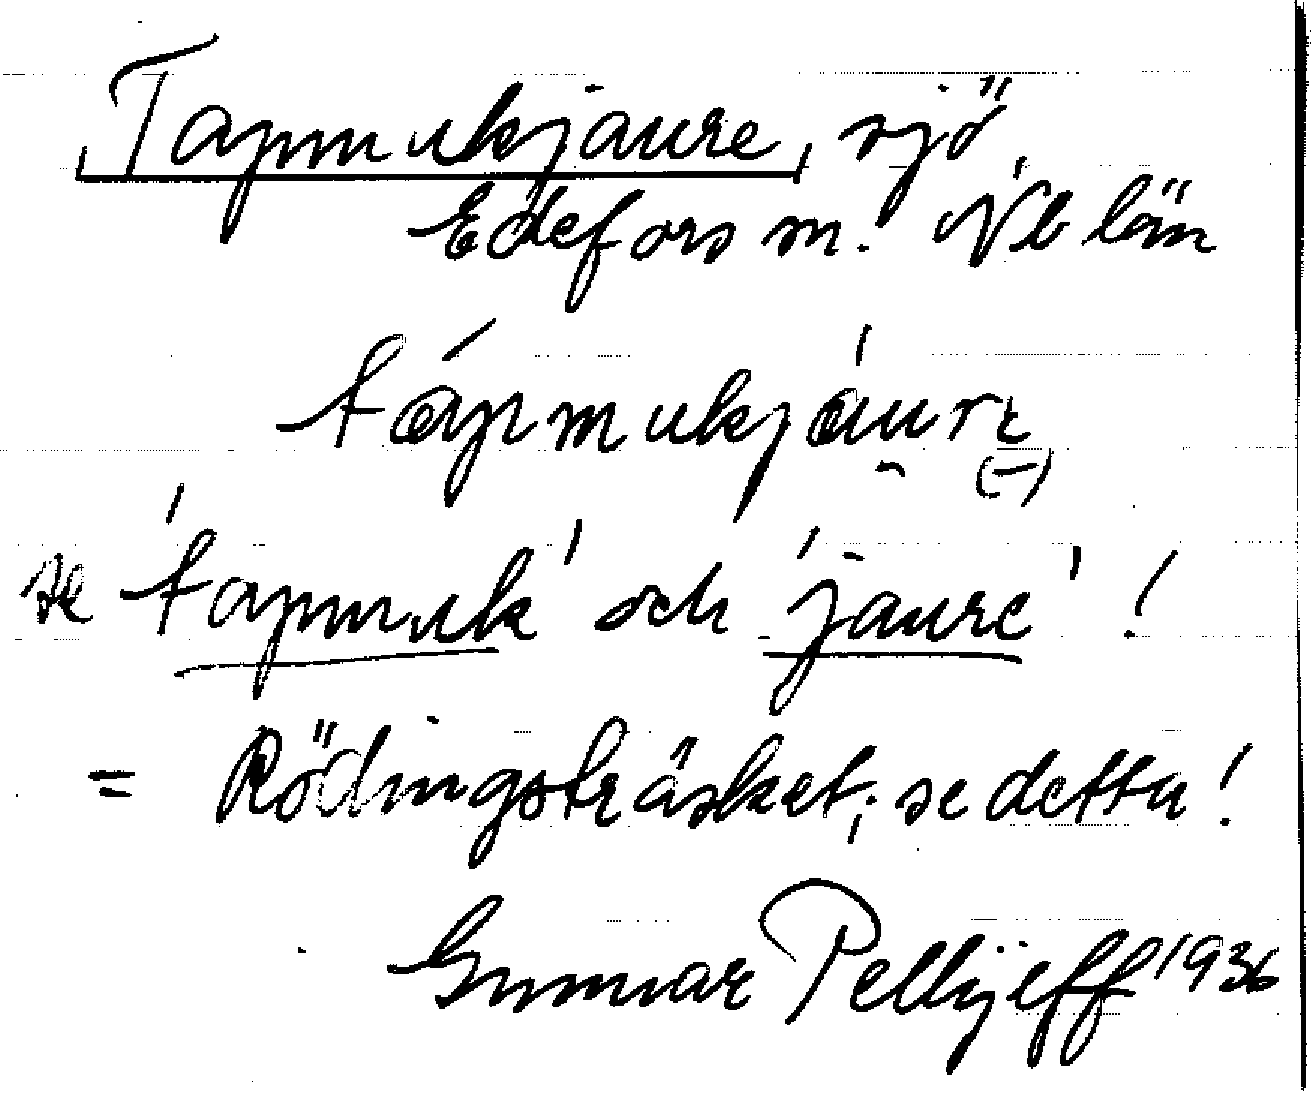 Tapmukjaure, sjö
Edefors sn. Nb län
tápmukjáurε
(–)
se 'tapmuk' och 'jaure' !
= Rödingsträsket; se detta!
Gunnar Pellijeff 1936